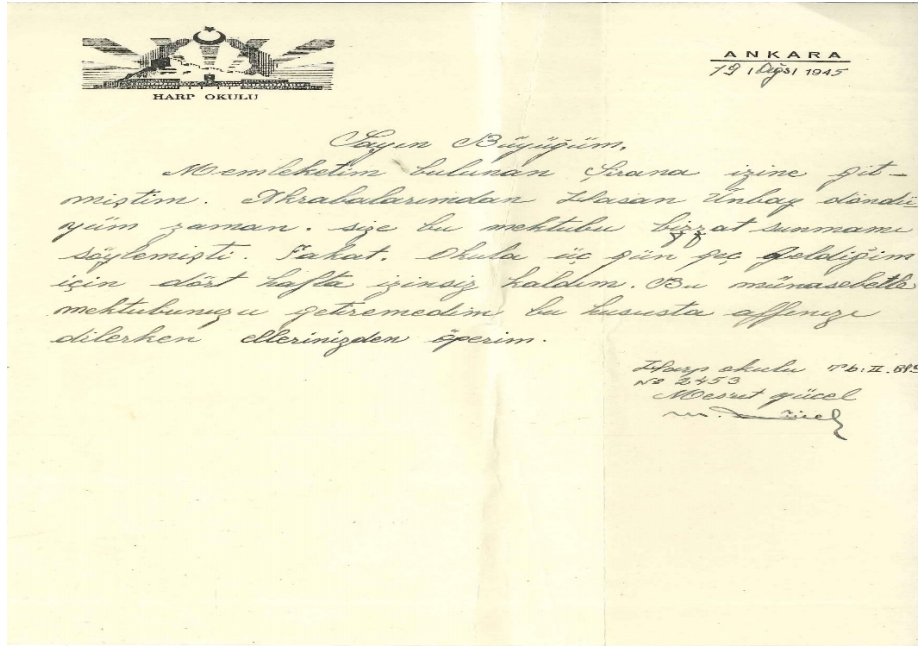 HARP OKULU
ANKARA
19 | Ağs | 1945
Sayın Büyüğüm.
Memleketim bulunan Şirana izine git-
miştim. Akrabalarımdan Hasan Ünbay döndü
yüm zaman. size bu mektubu bizzat sunmamı
söylemişti. Fakat. Okula üç gün geç geldiğim
için dört hafta izinsiz kaldım. Bu münasebetle
mektubunuzu getiremedim bu hususta affınızı
dilerken ellerinizden öperim.
Harp okulu Tb. II.
No 2453
Mesut yücel